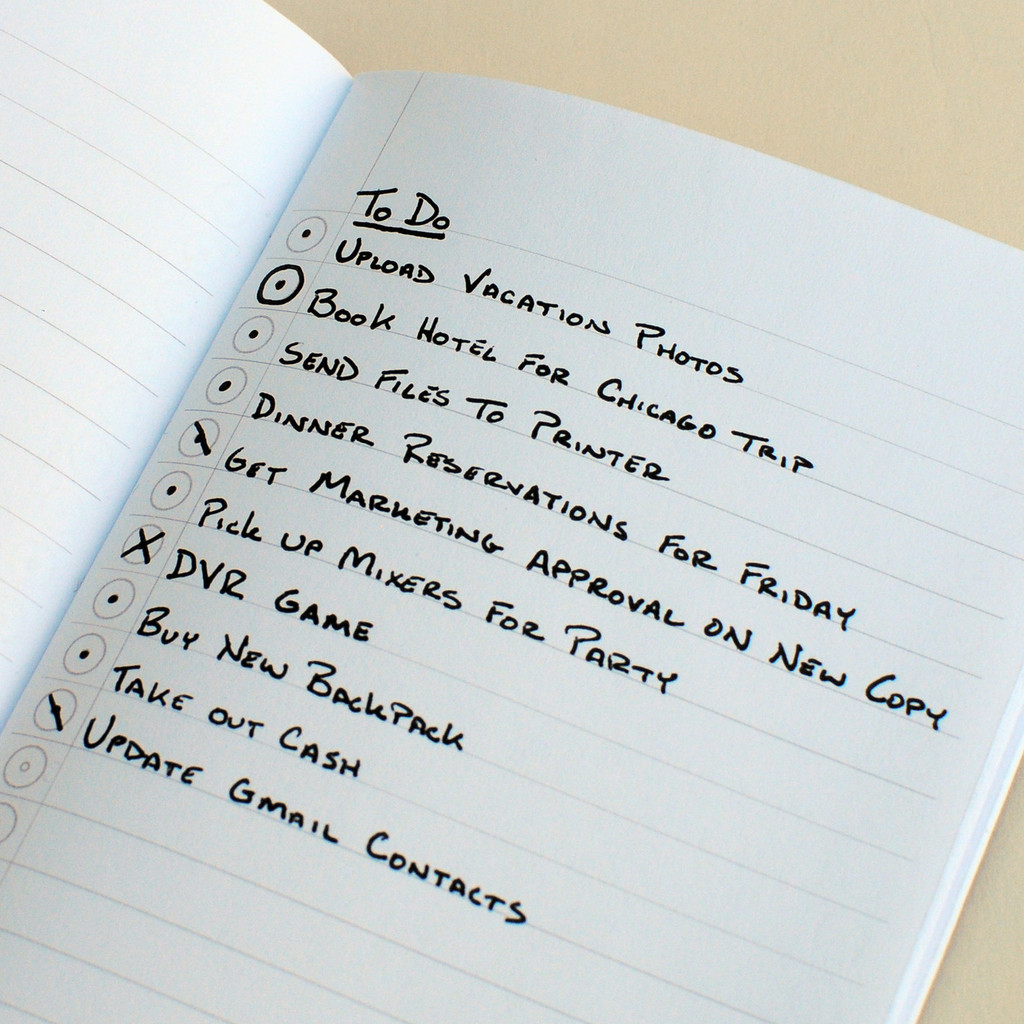 To Do
Upload Vacation Photos
Book Hotel for Chicago Trip
Send Files to Printer
Dinner Reservations for Friday
Get Marketing Approval on New Copy
Pick up Mixers for Party
DVR Game
Buy New Backpack
Take out Cash
Update Gmail Contacts